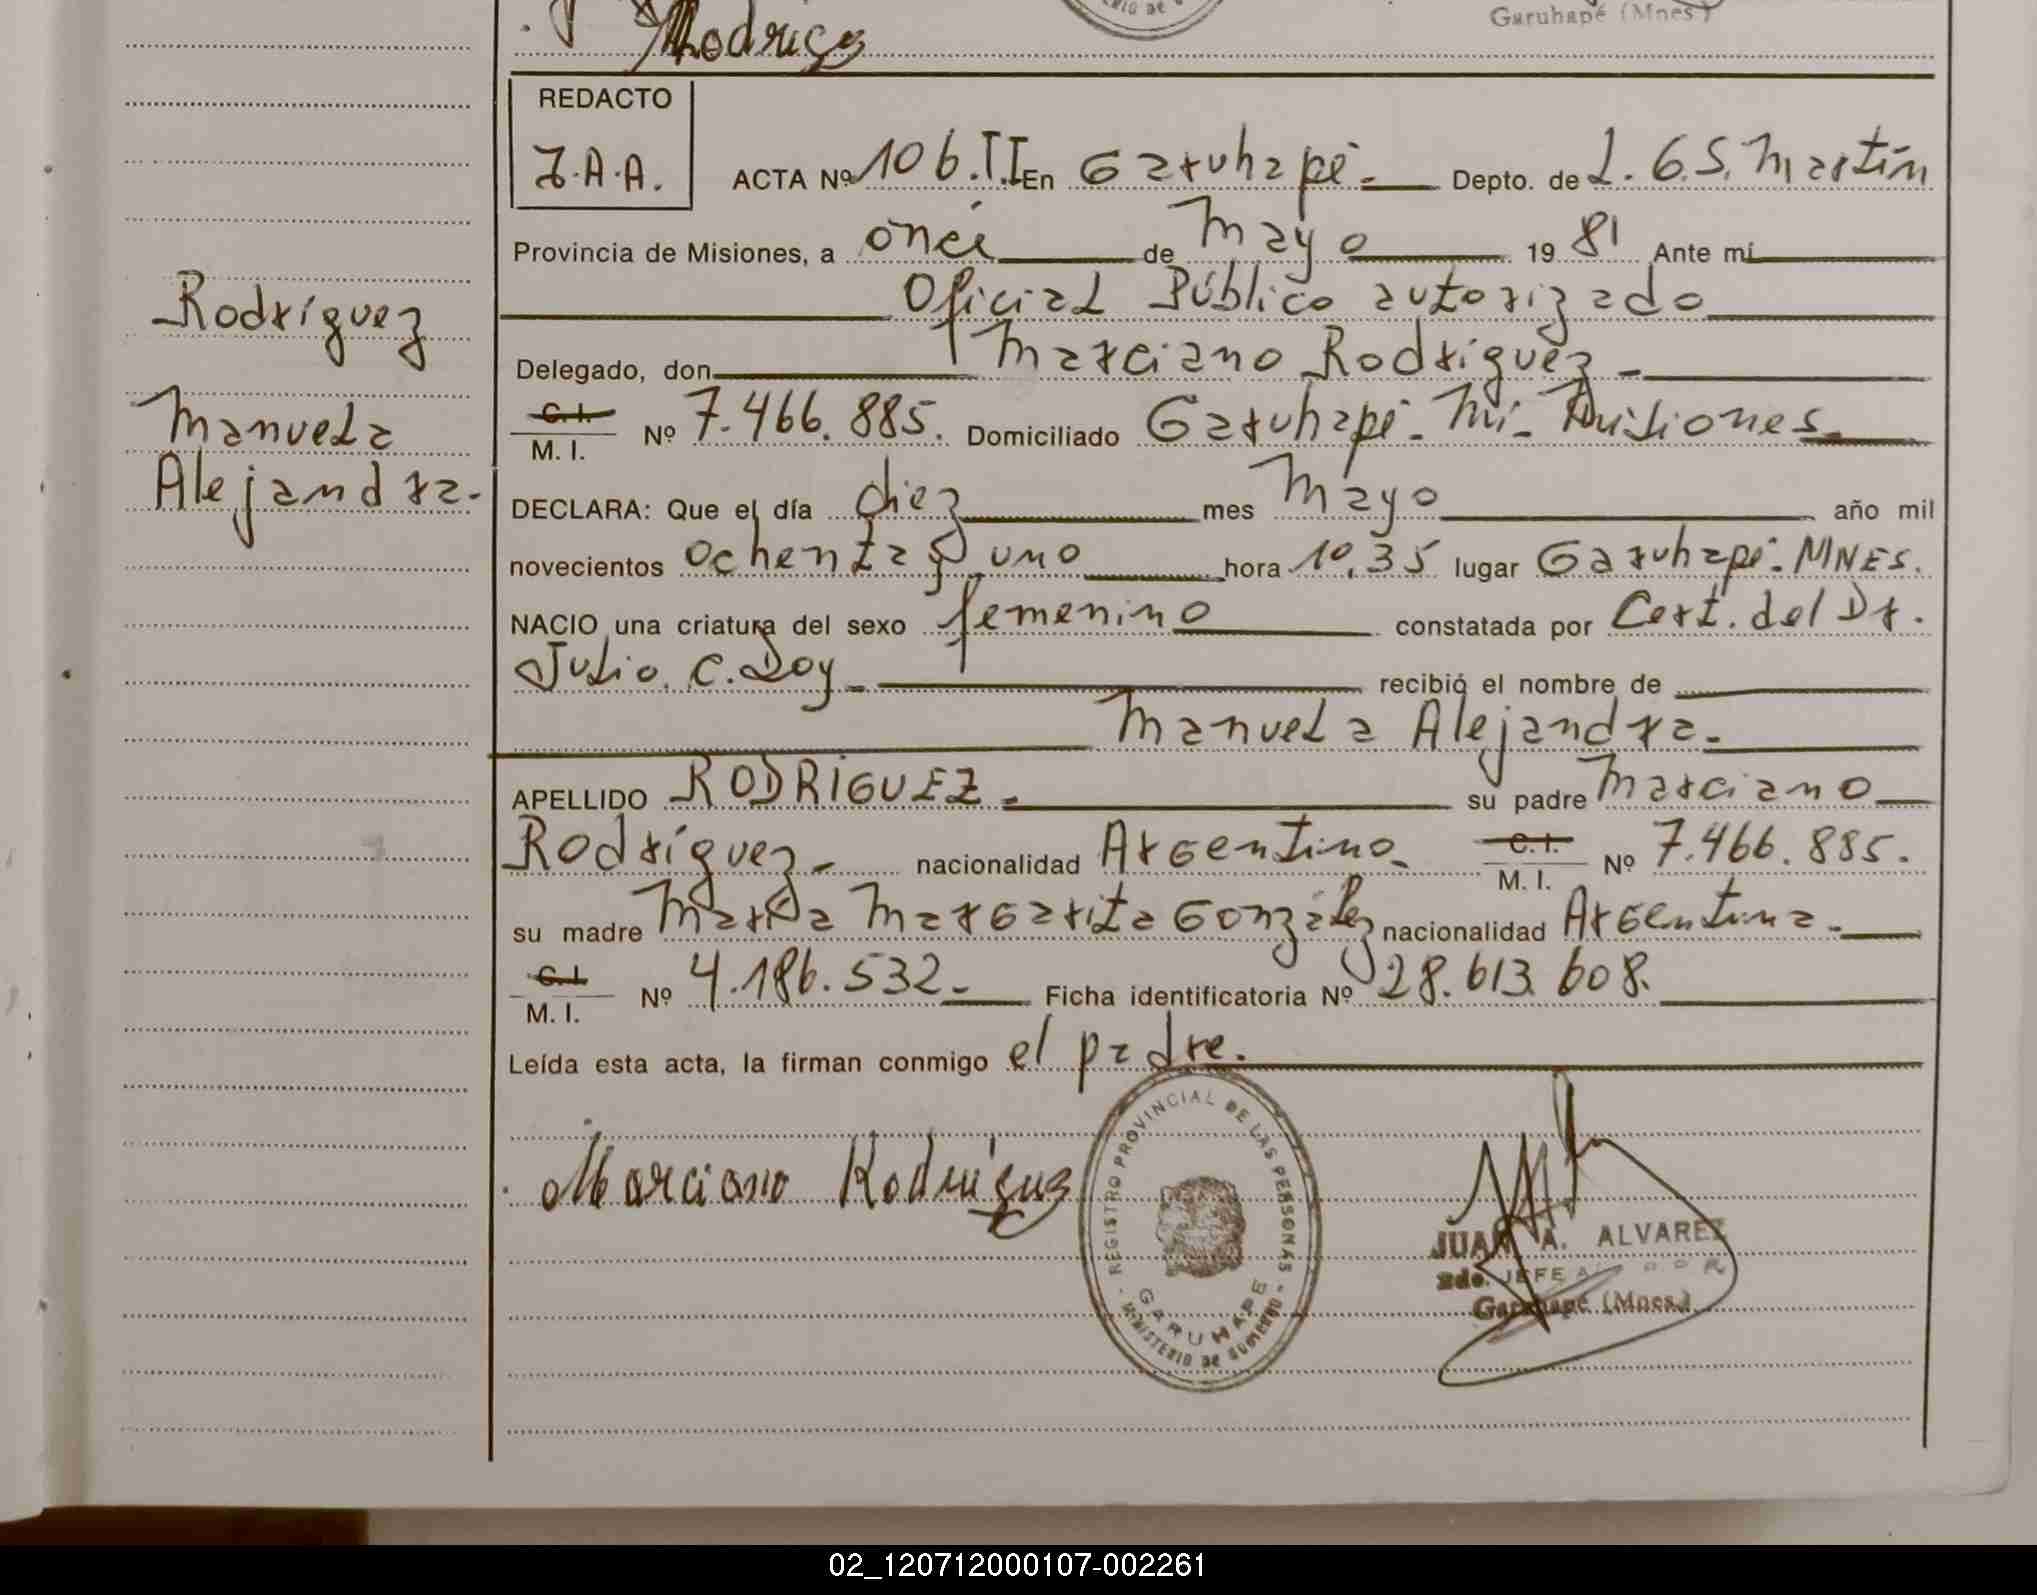 Rodríguez
Garuhapé (Mnes)
REDACTO
J.A.A.
ACTA Nº 106.T.I En Garuhapé.- Depto. de L.G.S. Martín
Provincia de Misiones, a once de Mayo 19 81 Ante mí
Oficial Público autorizado
Delegado, don Marciano Rodríguez -
C.I. M. I. Nº 7.466.885. Domiciliado Garuhapé - Mi- Misiones.
DECLARA: Que el día diez mes Mayo año mil
novecientos ochenta y uno hora 10,35 lugar Garuhapé - MNES.
NACIO una criatura del sexo femenino constatada por Cert. del Dr.
Julio C. Doy - recibió el nombre de
Manuela Alejandra.-
APELLIDO RODRÍGUEZ.- su padre Marciano
Rodríguez.- nacionalidad Argentino.- C.I. M. I. Nº 7.466.885.
su madre María Margarita González nacionalidad Argentina.-
C.I. M. I. Nº 4.186.532.- Ficha identificatoria Nº 28.613.608.
Leída esta acta, la firman conmigo el padre.
Rodríguez
Manuela
Alejandra.-
Marciano Rodríguez
REGISTRO PROVINCIAL DE LAS PERSONAS
GARUHAPE
MINISTERIO DE GOBIERNO
JUAN A. ALVAREZ
2do. JEFE
Garuhapé (Mnes.)
02_120712000107-002261